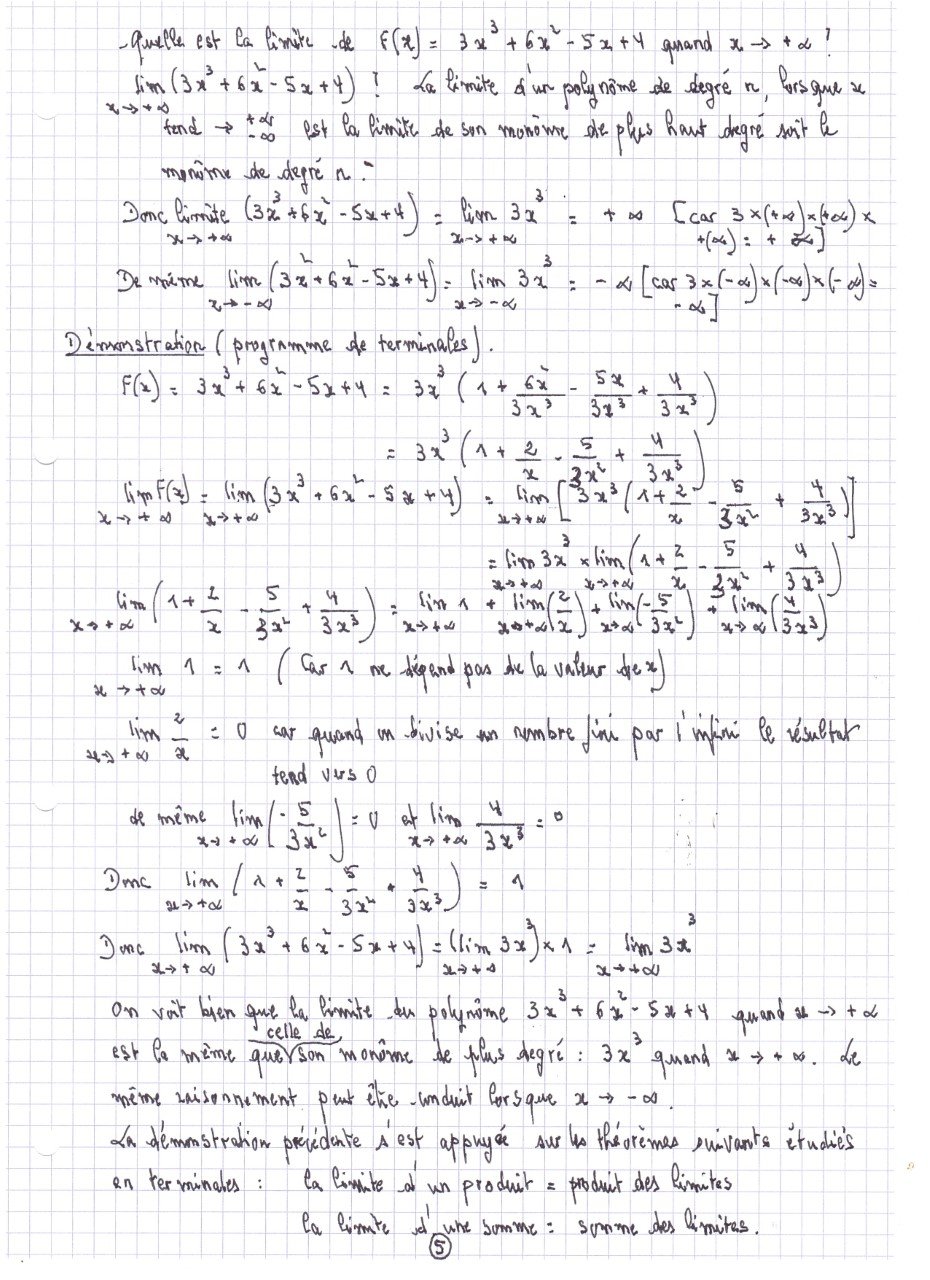 - Quelle est la limite de F(x) = 3x³ + 6x² - 5x + 4 quand x → +∞ ?
lim (3x³ + 6x² - 5x + 4) ? La limite d'un polynôme de degré n, lorsque x
x → +∞
tend → +∞ -∞ est la limite de son monôme de plus haut degré soit le
monôme de degré n.
Donc limite (3x³ + 6x² - 5x + 4) = lim 3x³ = +∞ [car 3 × (+∞) × (+∞) ×
x → +∞ x → +∞ +(∞) = +∞]
De même lim (3x² + 6x² - 5x + 4) = lim 3x³ = -∞ [car 3 × (-∞) × (-∞) × (-∞) =
x → -∞ x → -∞ -∞]
Démonstration (programme de terminales).
F(x) = 3x³ + 6x² - 5x + 4 = 3x³ (1 + 6x²/3x³ - 5x/3x³ + 4/3x³)
= 3x³ (1 + 2/x - 5/3x² + 4/3x³)
lim F(x) = lim (3x³ + 6x² - 5x + 4) = lim [3x³ (1 + 2/x - 5/3x² + 4/3x³)]
x → +∞ x → +∞ x → +∞
= lim 3x³ × lim (1 + 2/x - 5/3x² + 4/3x³)
x → +∞ x → +∞
lim (1 + 2/x - 5/3x² + 4/3x³) = lim 1 + lim (2/x) + lim (-5/3x²) + lim (4/3x³)
x → +∞ x → +∞ x → +∞ x → ∞ x → ∞
lim 1 = 1 (Car 1 ne dépend pas de la valeur de x)
x → +∞
lim 2/x = 0 car quand on divise un nombre fini par l'infini le résultat
x → +∞
tend vers 0
de même lim (-5/3x²) = 0 et lim 4/3x³ = 0
x → +∞ x → +∞
Donc lim (1 + 2/x - 5/3x² + 4/3x³) = 1
x → +∞
Donc lim (3x³ + 6x² - 5x + 4) = (lim 3x³) × 1 = lim 3x³
x → +∞ x → +∞ x → +∞
On voit bien que la limite du polynôme 3x³ + 6x² - 5x + 4 quand x → +∞
celle de
est la même que son monôme de plus degré : 3x³ quand x → +∞. Le
même raisonnement peut être conduit lorsque x → -∞.
La démonstration précédente s'est appuyée sur les théorèmes suivants étudiés
en terminales : la limite d'un produit = produit des limites
la limite d'une somme = somme des limites.
5